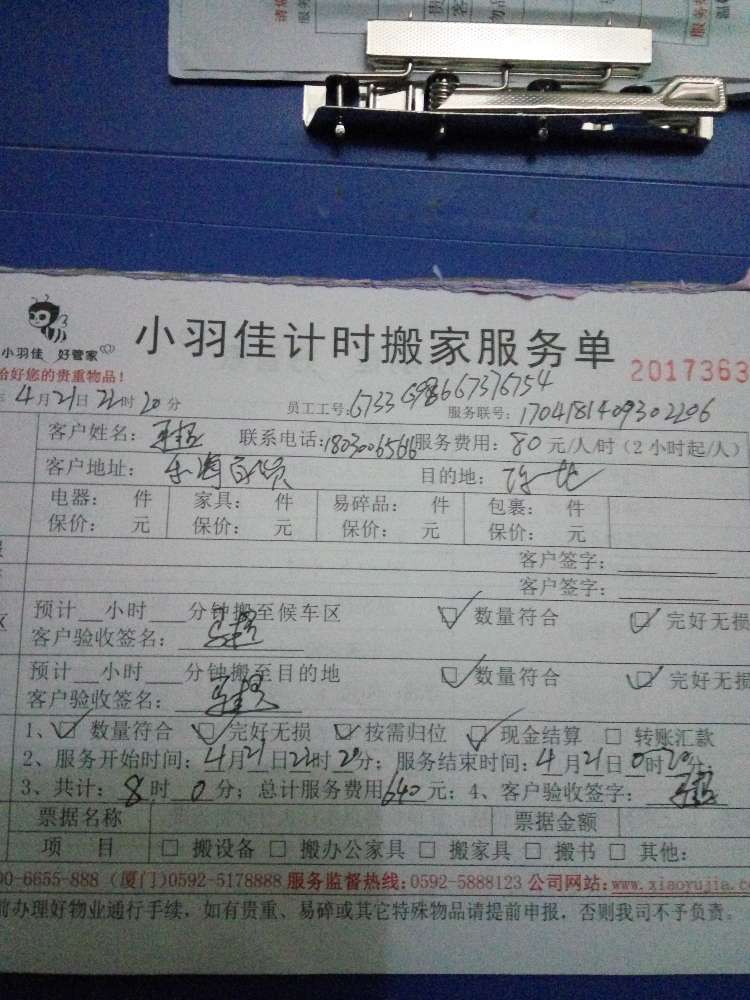 小羽佳 好管家
小羽佳计时搬家服务单
2017363
您的贵重物品！
4月21日22时20分
员工工号：6733
服务联号：1704181409302206
客户姓名： 联系电话：1803006566 服务费用：80元/人/时（2小时起/人）
客户地址： 目的地：
电器： 件 家具： 件 易碎品： 件 包裹： 件
保价： 元 保价： 元 保价： 元 保价： 元
客户签字：
客户签字：
预计__小时___分钟搬至候车区 数量符合 完好无损
客户验收签名：
预计__小时___分钟搬至目的地 数量符合 完好无损
客户验收签名：
1、数量符合 完好无损 按需归位 现金结算 转账汇款
2、服务开始时间：4月21日22时20分；服务结束时间：4月21日0时20分；
3、共计：8时0分；总计服务费用640元；4、客户验收签字：
票据名称 票据金额
项 目 搬设备 搬办公家具 搬家具 搬书 其他：
00-6655-888（厦门）0592-5178888 服务监督热线：0592-5888123 公司网站：www.xiaoyujia.co
前办理好物业通行手续，如有贵重、易碎或其它特殊物品请提前申报，否则我司不予负责。